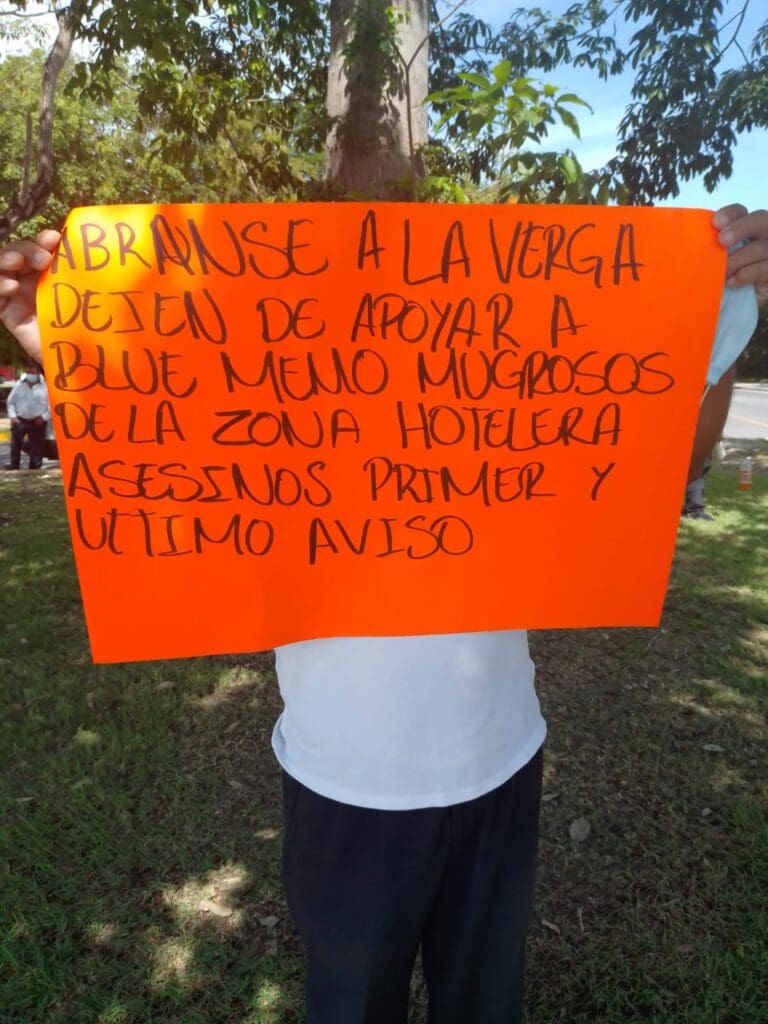 ABRANSE A LA VERGA
DEJEN DE APOYAR A
BLUE MEMO MUGROSOS
DE LA ZONA HOTELERA
ASESINOS PRIMER Y
ULTIMO AVISO